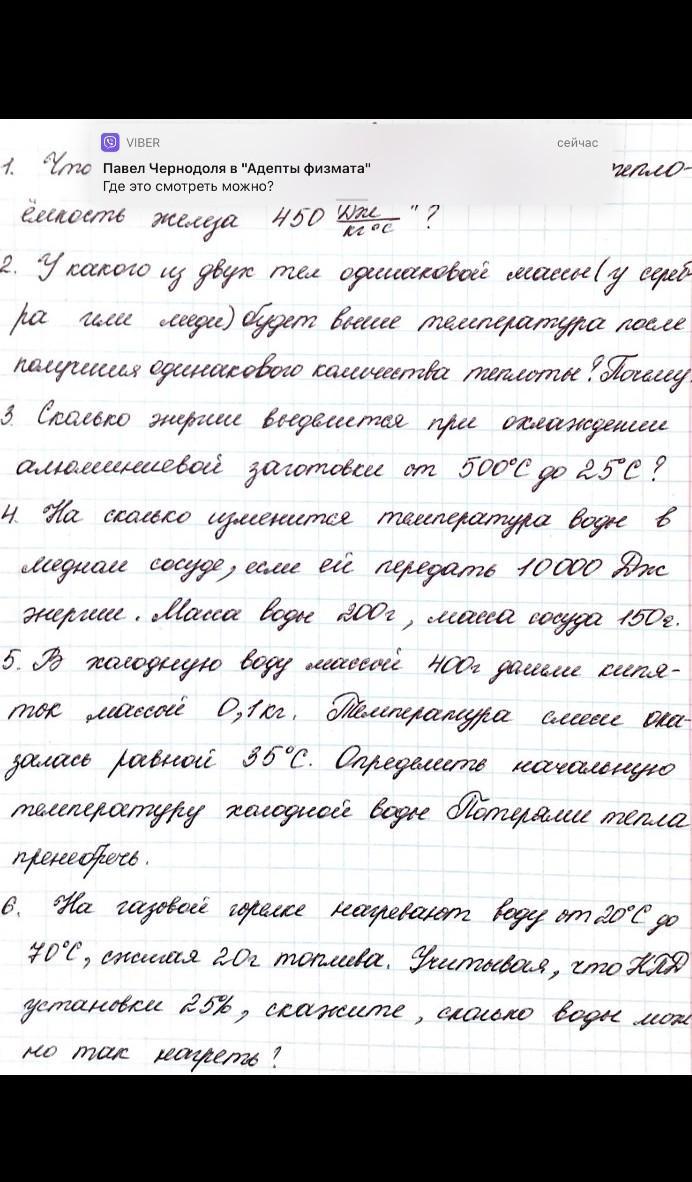 VIBER
сейчас
Павел Чернодоля в "Адепты физмата"
Где это смотреть можно?
1. Что тепло-
ёмкость железа в 450 Дж/кг°С" ?
2. У какого из двух тел одинаковой массы (у сереб-
ра или меди) будет выше температура после
получения одинакового количества теплоты? Почему
3. Сколько энергии выделится при охлаждении
алюминиевой заготовки от 500°С до 25°С ?
4. На сколько изменится температура воды в
медном сосуде, если ей передать 10000 Дж
энергии. Масса воды 200г, масса сосуда 150г.
5. В холодную воду массой 400г долили кипя-
ток массой 0,1кг. Температура смеси ока-
залась равной 35°С. Определить начальную
температуру холодной воды Потерями тепла
пренебречь.
6. На газовой горелке нагревают воду от 20°С до
70°С, сжигая 20г топлива. Учитывая, что КПД
установки 25%, скажите, сколько воды мож
но так нагреть?